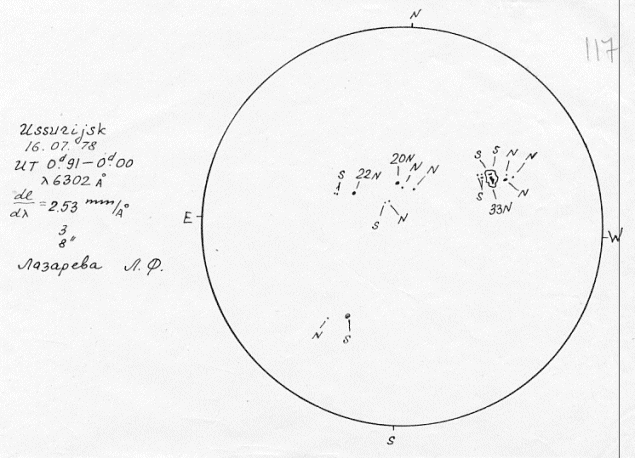 N
117
Ussurijsk
16.07.78
UT 0ᵈ.91-0ᵈ.00
λ6302 Å
dl/dλ = 2.53 mm/Å
3
8"
Лазарева Л.Ф.
S 22N 20N N N
S S N N
S N S 33N N
E
W
N S
S